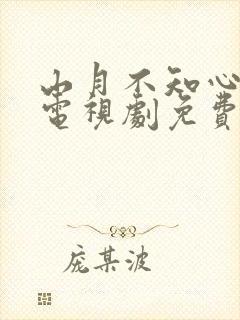 山月不知心
電視劇免費
庞某波